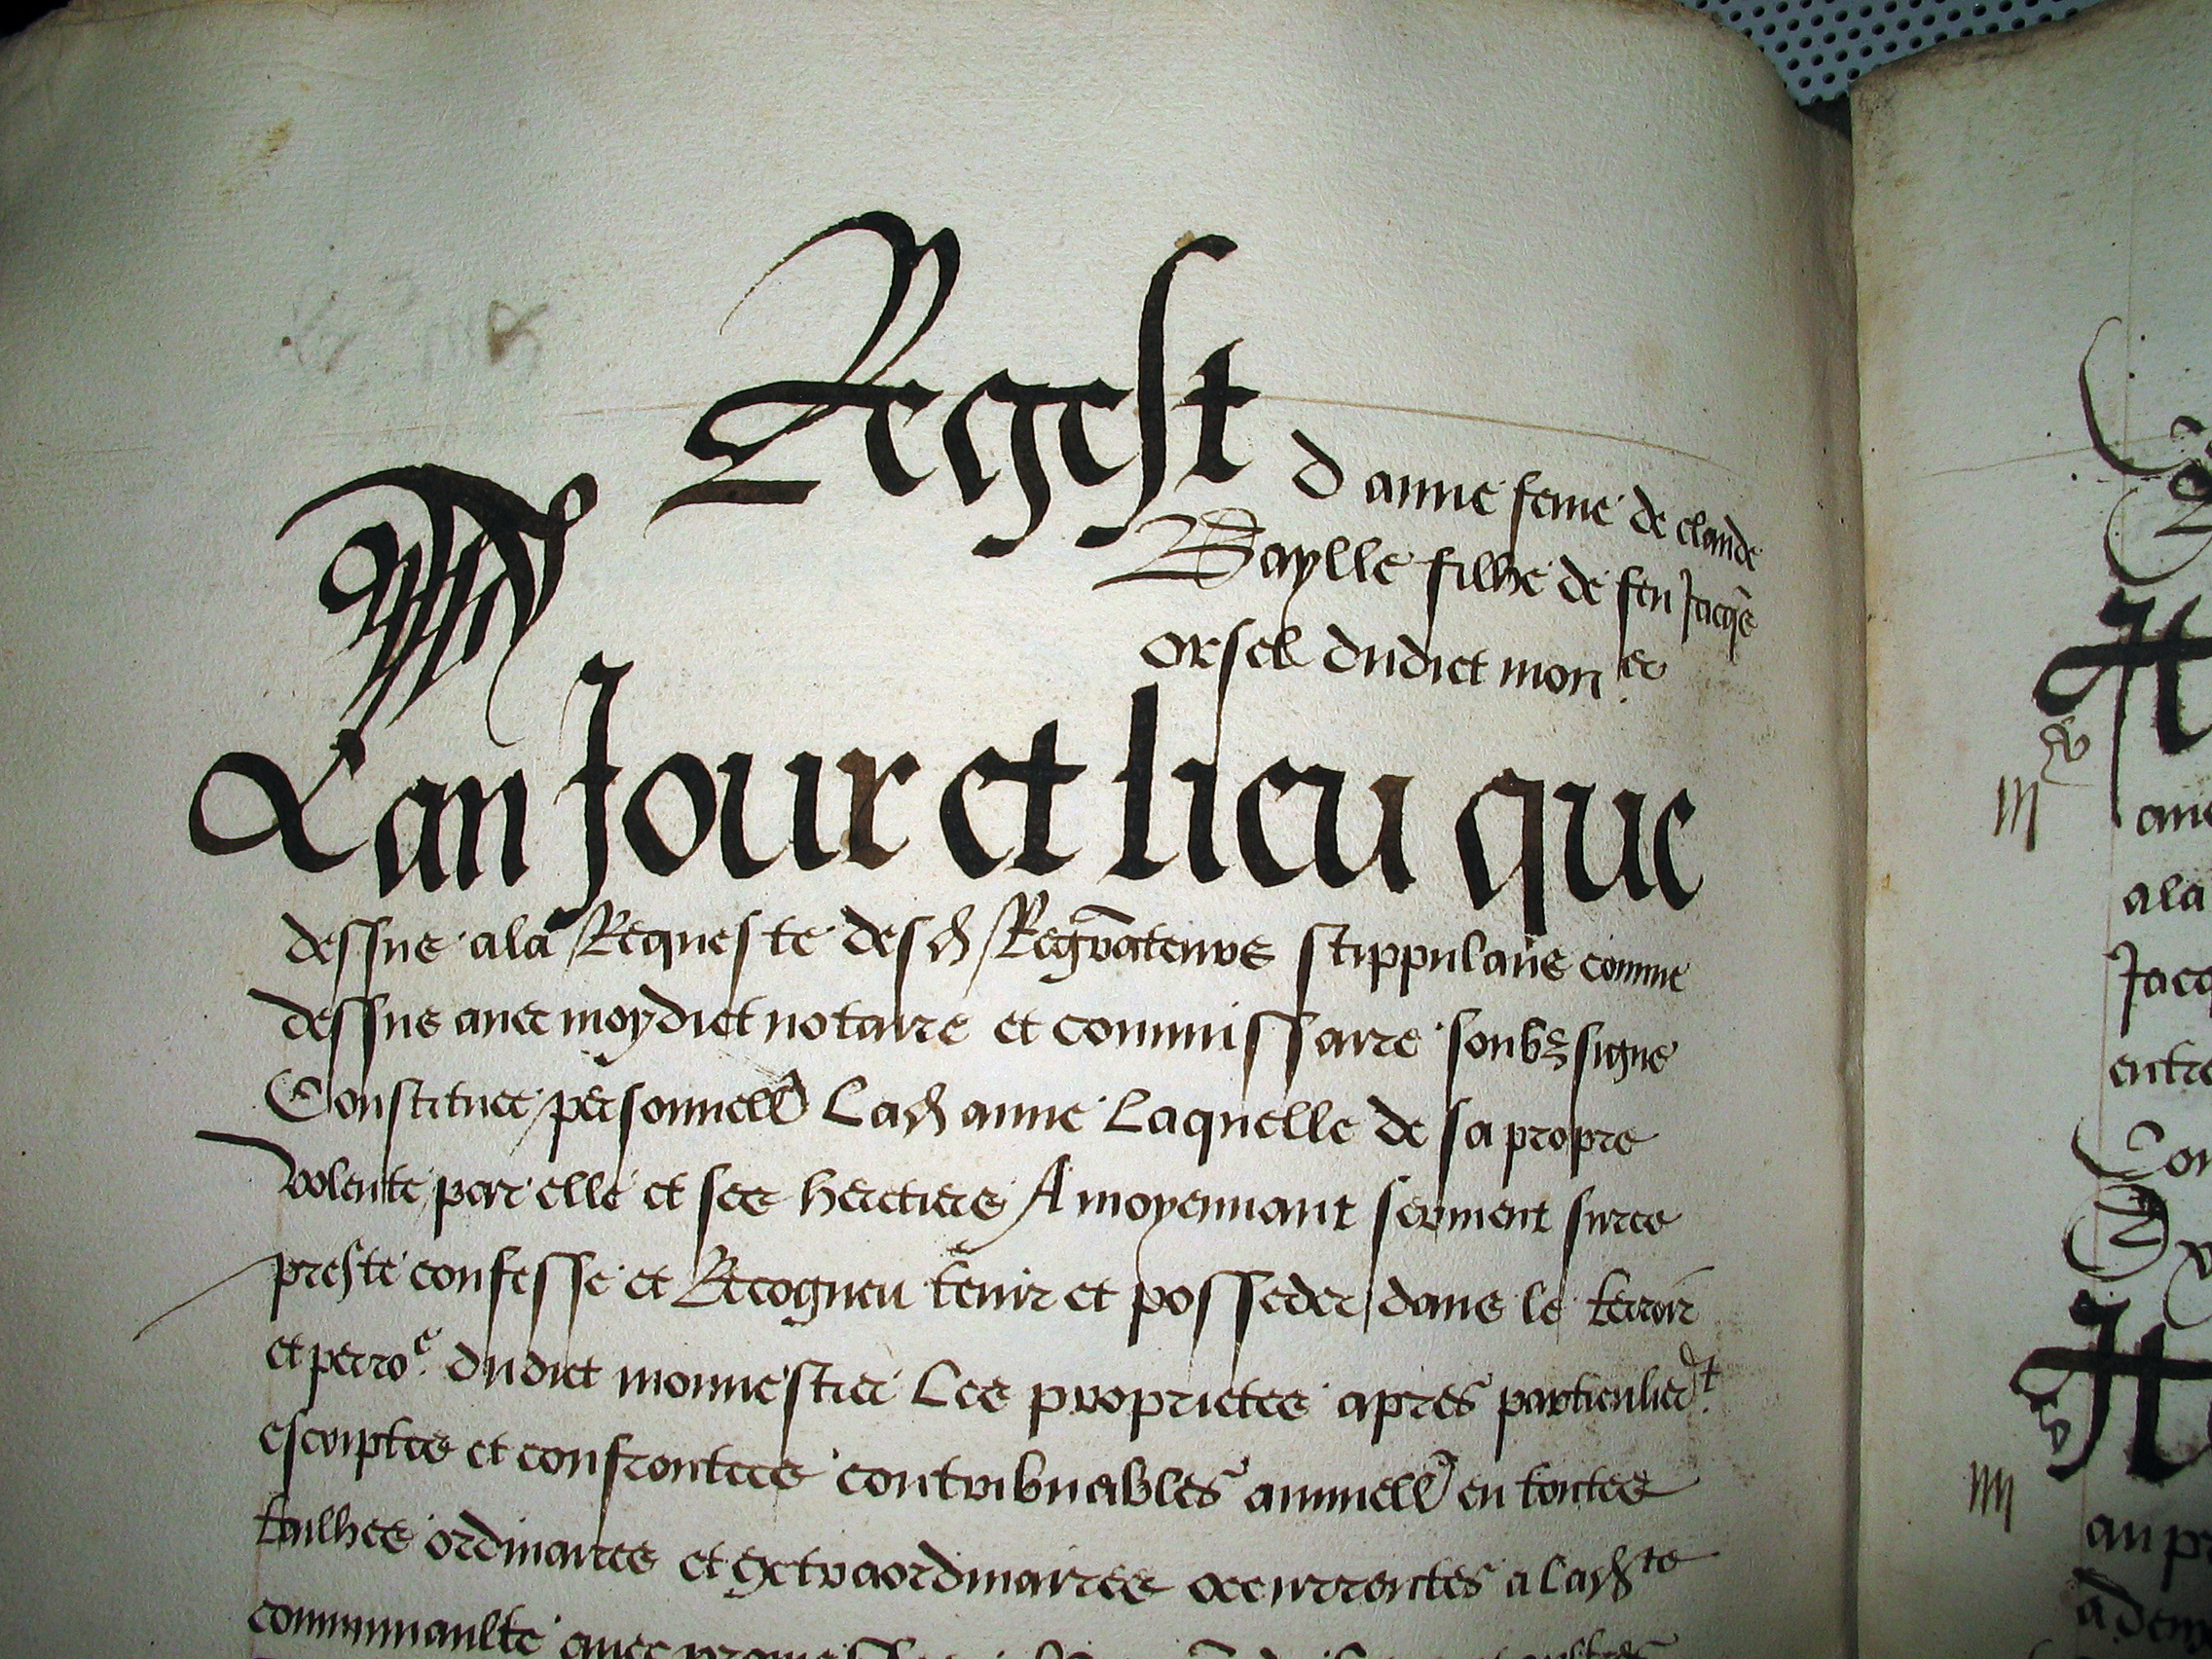 Regest d anne feme de claude
Baylle filhe de feu Jacqs
orsel dudict mon.er
Lan Jour et lieu que
dessus ala Requeste des d Regrateurs stippulans comme
dessus avec moydict notaire et commissaire soubz signe
Constituee personnell Lad anne Laquelle de sa propre
volente par elle et ses heretiers A moyennant serment surce
preste confesse et Recogneu tenir et posseder dans le terroir
et perro.e dudict monnestier Les proprietes apres particulier.t
escriptes et confrontees contribuables annuell en toutes
tailhes ordinaires et extraordinaires occurrentes a lad.te
communaulte avec
H
ane
ala
Jacq
entre
Con
H
au p
a dem